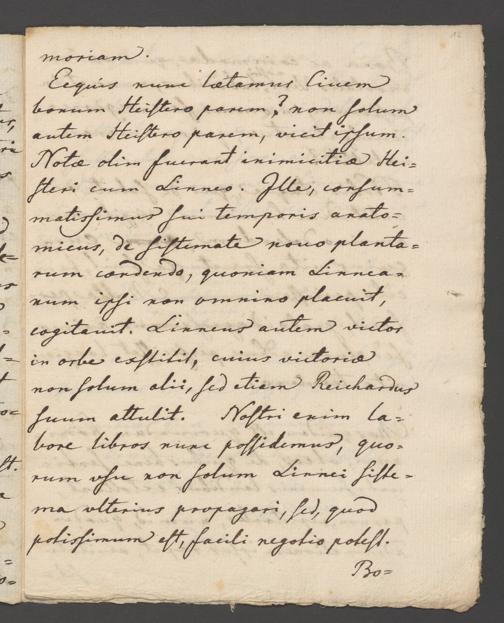 moriam.
Ecquis nunc laetamur Civem
bonum Heistero parem? non solum
autem Heistero parem, vicit ipsum.
Notae olim fuerant inimicitiae Hei=
steri cum Linneo. Ille, consum=
matissimus sui temporis anato=
micus, de sistemate novo planta=
rum condendo, quoniam Linnea=
num ipsi non omnino placuit,
cogitauit. Linneus autem victor
in orbe exstitit, cuius victoriae
non solum alii, sed etiam Reichardus
suum attulit. Nostri enim la=
bore libros nunc possidemus, quo=
rum usu non solum Linnei siste=
ma ulterius propagari, sed, quod
potissimum est, facili negotio potest.
Bo=